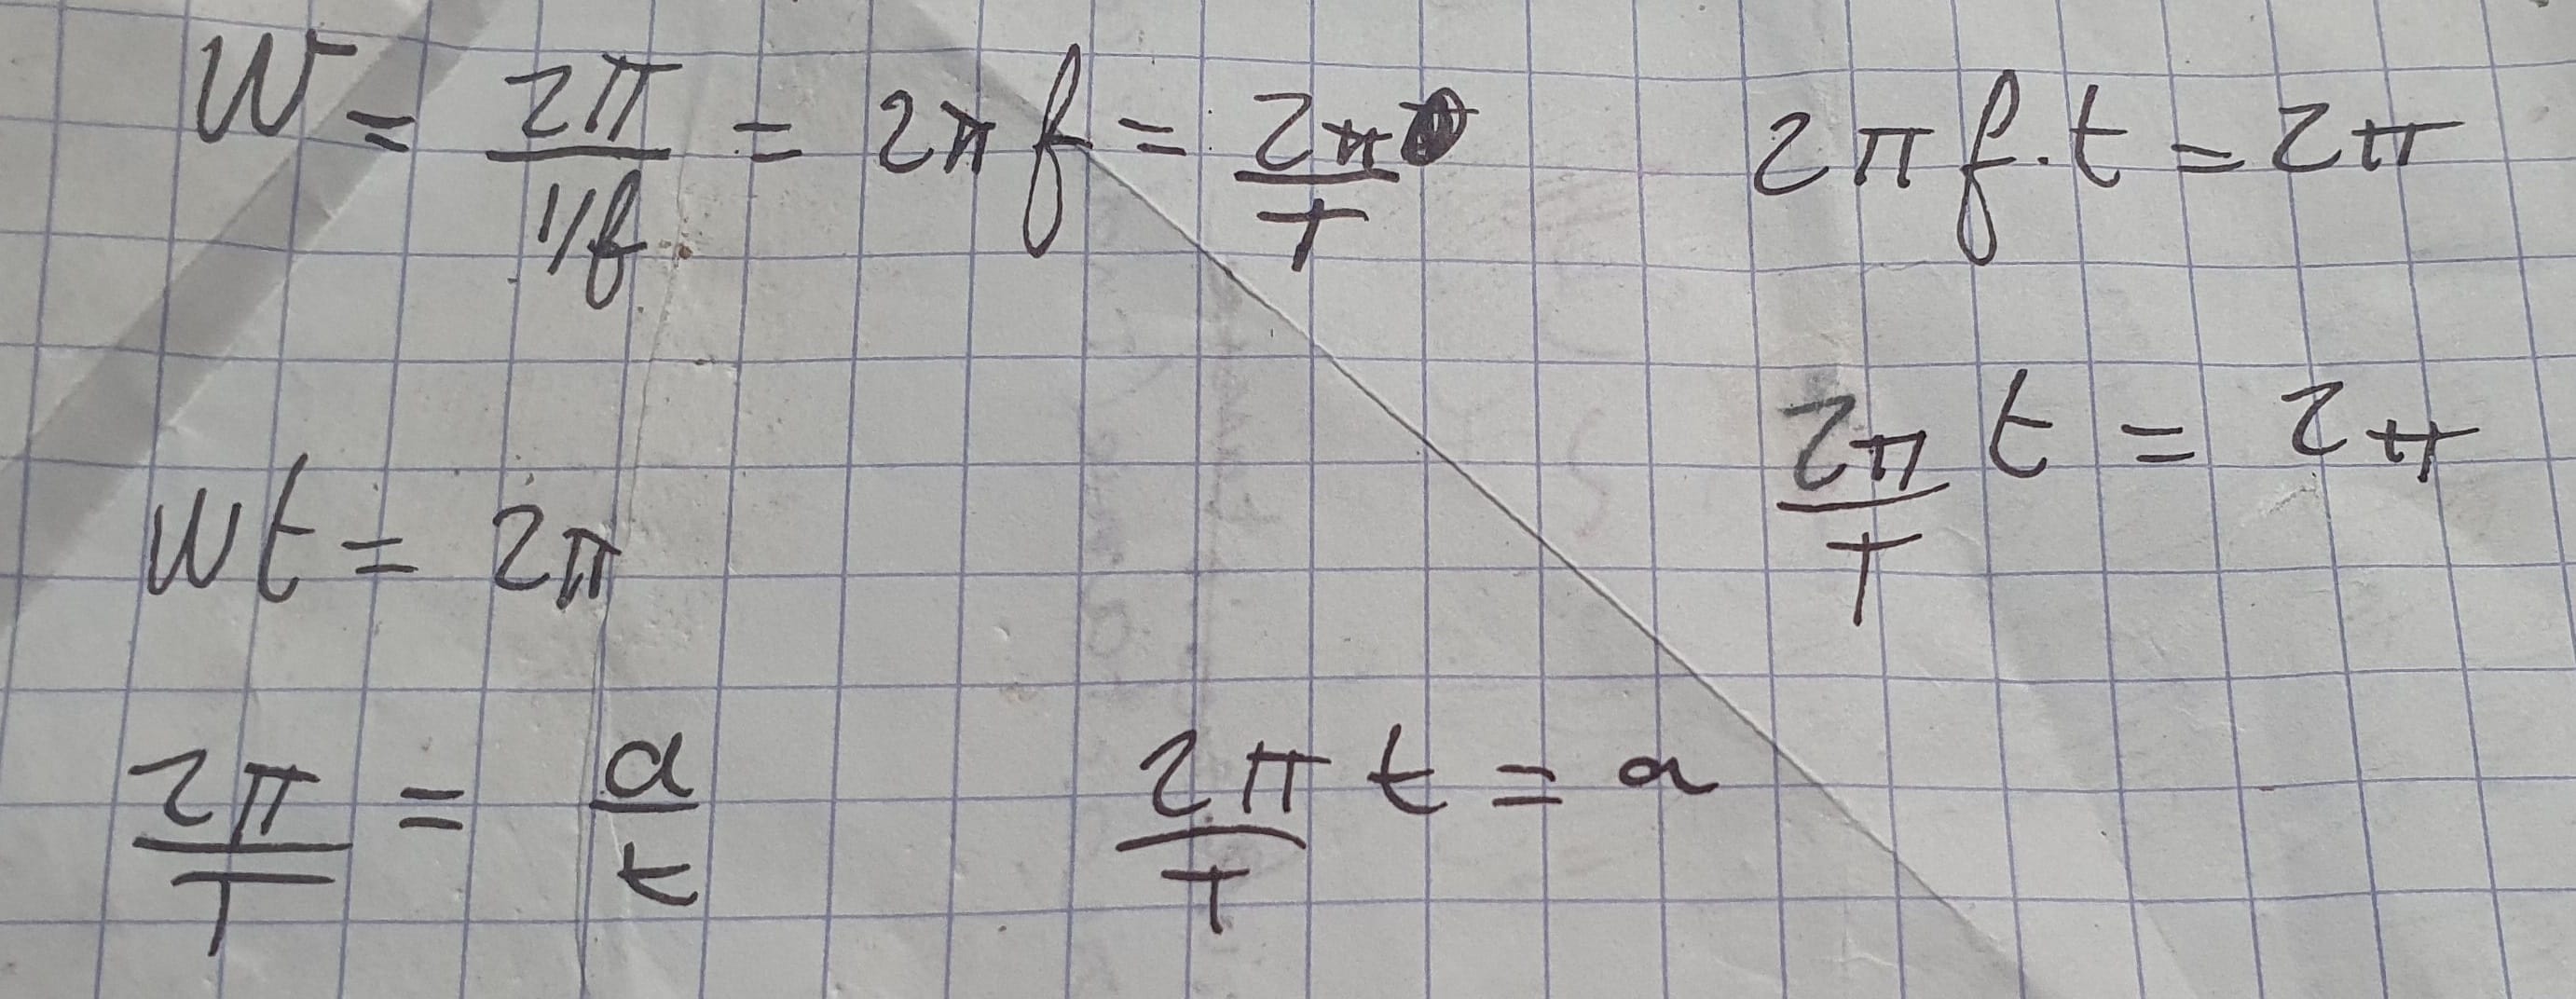 W = 2π / 1/f = 2πf = 2π / T
2πf·t = 2π
2π/T t = 2π
Wt = 2π
2π/T = a/t
2π/T t = a